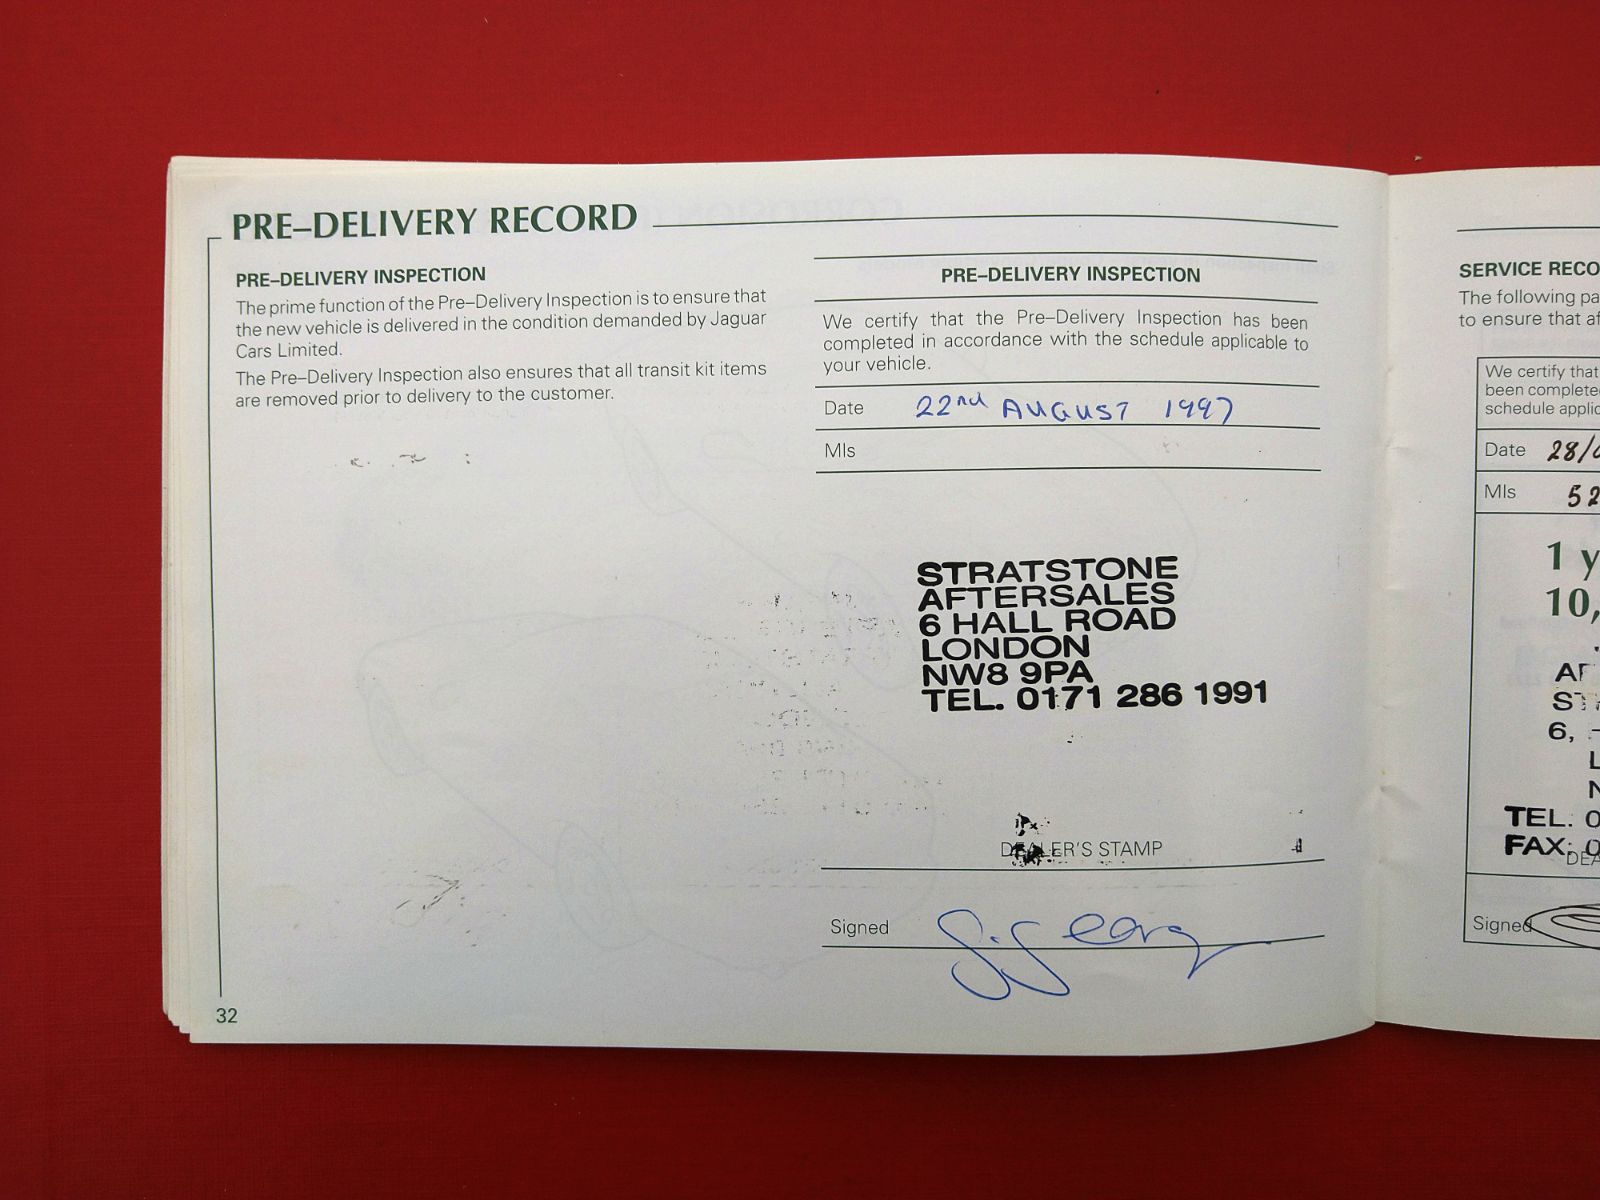 PRE–DELIVERY RECORD
PRE–DELIVERY INSPECTION
The prime function of the Pre–Delivery Inspection is to ensure that
the new vehicle is delivered in the condition demanded by Jaguar
Cars Limited.
The Pre–Delivery Inspection also ensures that all transit kit items
are removed prior to delivery to the customer.
PRE–DELIVERY INSPECTION
We certify that the Pre–Delivery Inspection has been
completed in accordance with the schedule applicable to
your vehicle.
Date 22nd AUGUST 1997
Mls
STRATSTONE
AFTERSALES
6 HALL ROAD
LONDON
NW8 9PA
TEL. 0171 286 1991
DEALER'S STAMP
Signed
32
SERVICE RECO
The following pa
to ensure that af
We certify that
been complete
schedule applic
Date 28/
Mls 52
1 y
10,
6,
TEL: 0
FAX: 0
Signed